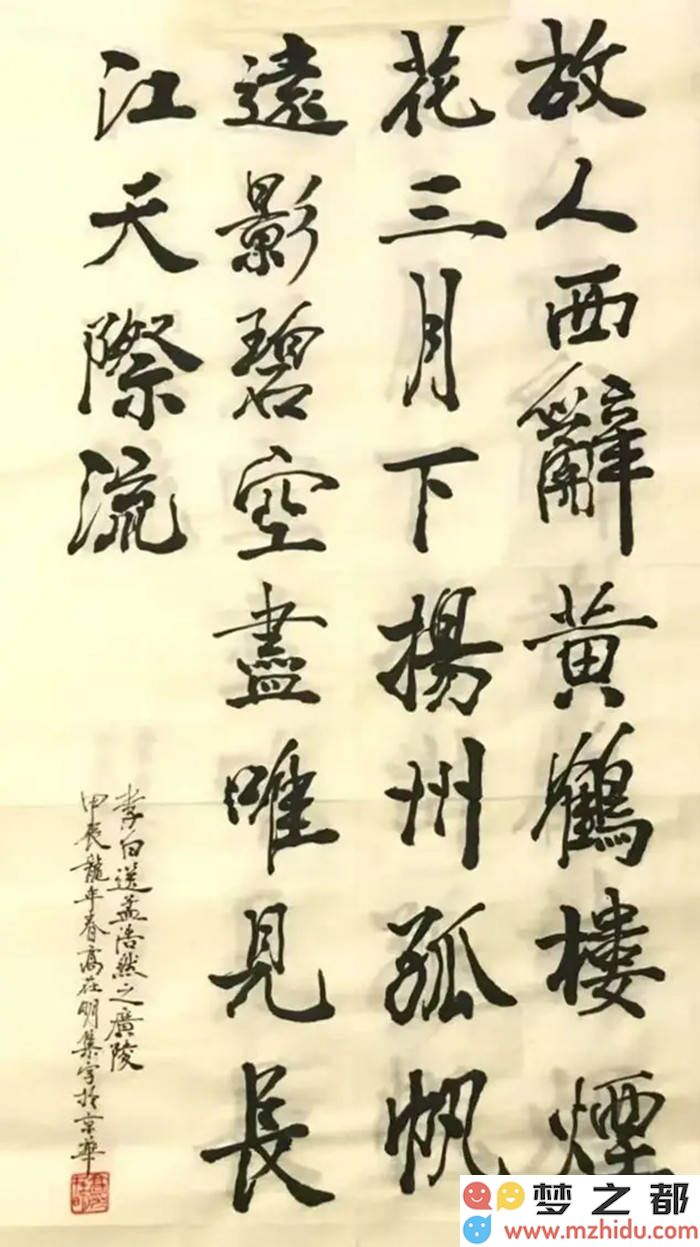 故人西辭黄鶴樓煙
花三月下揚州孤帆
遠影碧空盡唯見長
江天際流
李白送孟浩然之廣陵
甲辰龍年春高在明集字於京華
梦之都
www.mzhidu.com